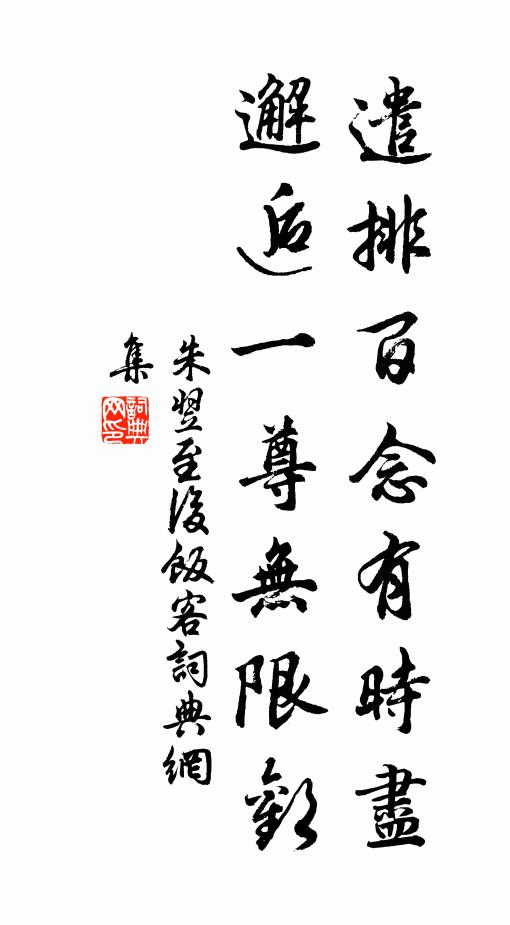 遣排百念有時盡
邂逅一尊無限歡
朱翌至後飯客詞典網
集
詞典網印